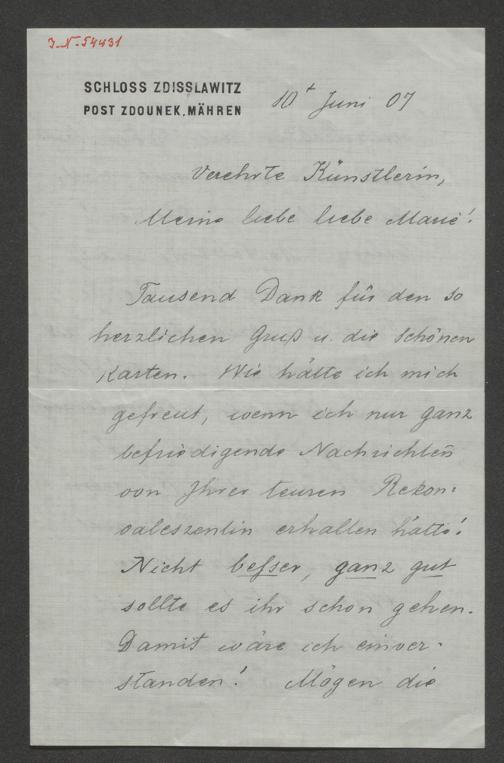 J.N. 54431
SCHLOSS ZDISSLAWITZ
POST ZDOUNEK, MÄHREN
10t Juni 07
Verehrte Künstlerin,
Meine liebe liebe Marie!
Tausend Dank für den so
herzlichen Gruß u. die schönen
Karten. Wie hätte ich mich
gefreut, wenn ich nur ganz
befriedigende Nachrichten
von Ihrer teuren Rekon-
valeszentin erhalten hätte!
Nicht besser, ganz gut
sollte es ihr schon gehen.
Damit wäre ich einver-
standen! Mögen die